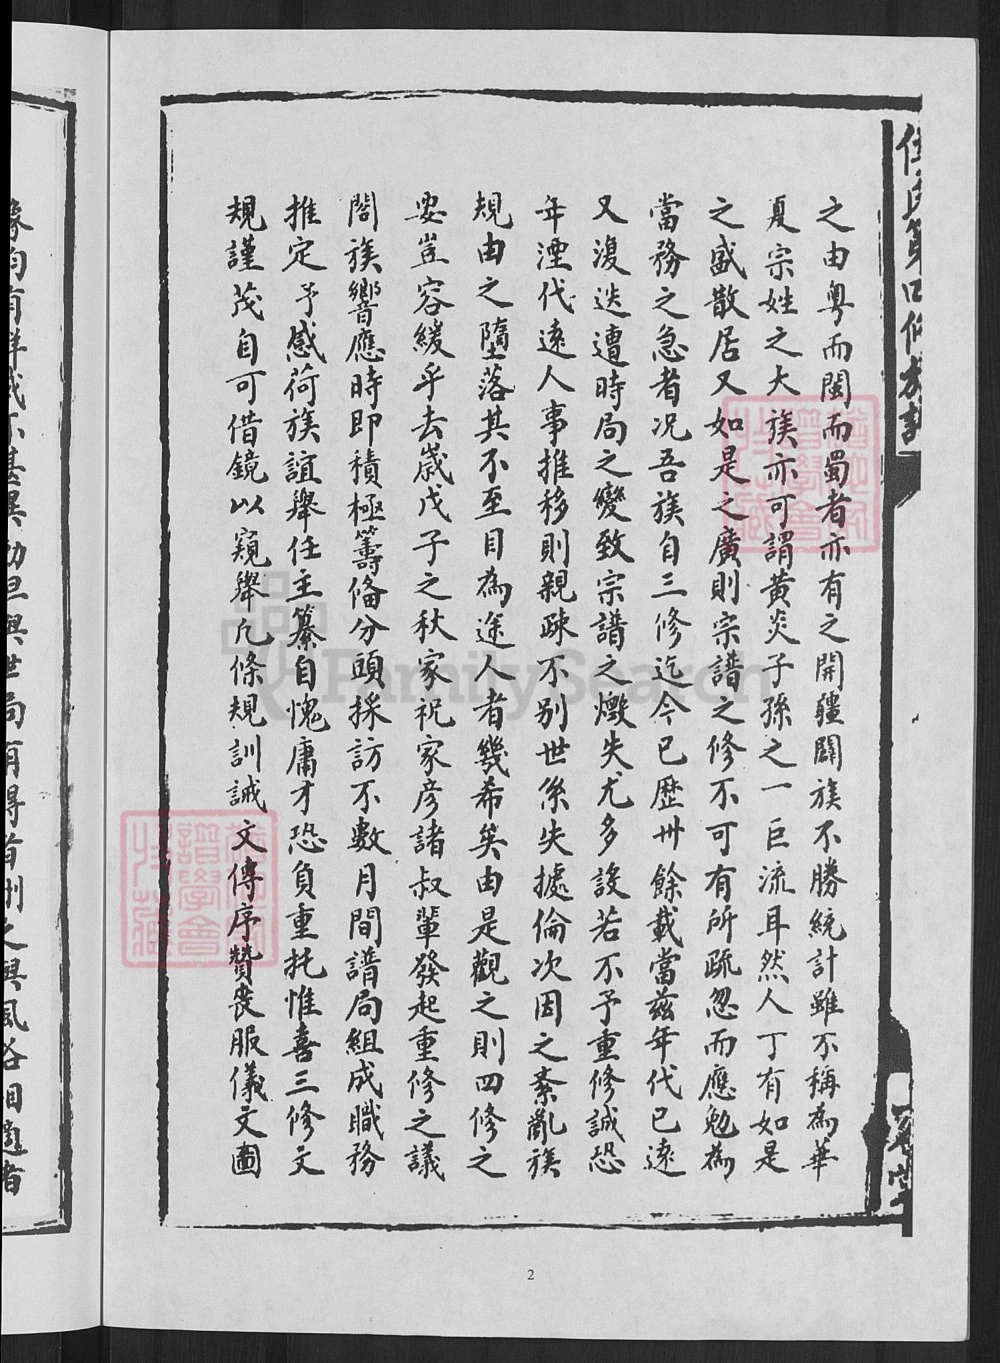 之由粵而閩而蜀者亦有之開疆闢族不勝統計雖不稱為華
夏宗姓之大族亦可謂黃炎子孫之一巨流耳然人丁有如是
之盛散居又如是之廣則宗譜之修不可有所疏忽而應勉為
當務之急者况吾族自三修迄今已歷卅餘載當茲年代已遠
又復迭遭時局之變致宗譜之燬失尤多設若不予重修誠恐
年湮代遠人事推移則親疎不別世系失據倫次因之紊亂族
規由之墮落其不至目為途人者幾希矣由是觀之則四修之
要豈容緩乎去歲戊子之秋家祝家彥諸叔輩發起重修之議
閤族響應時即積極籌備分頭採訪不數月間譜局組成職務
推定予感荷族誼舉任主纂自愧庸才恐負重托惟喜三修文
規謹茂自可借鏡以窺舉凡條規訓誡文傳序贊喪服儀文圖
2
FamilySearch